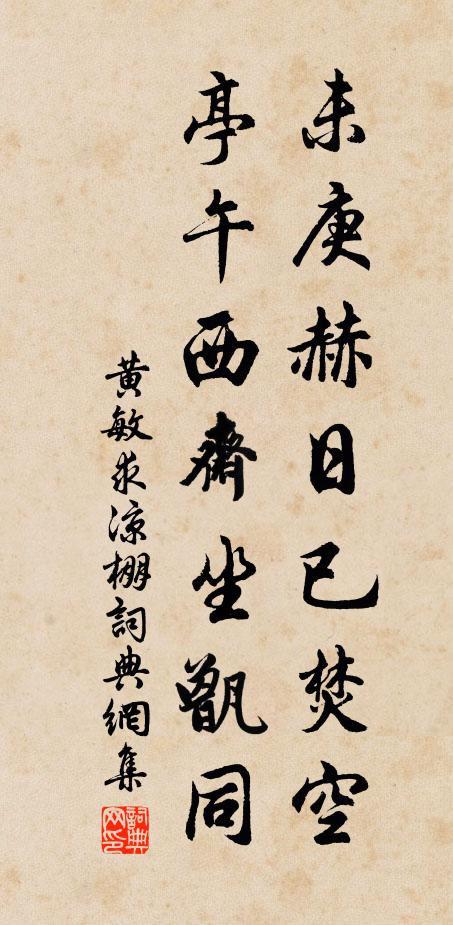 未庚赫日已焚空
亭午西齋坐甑同
黃敏求涼棚詞典網集
詞典網印